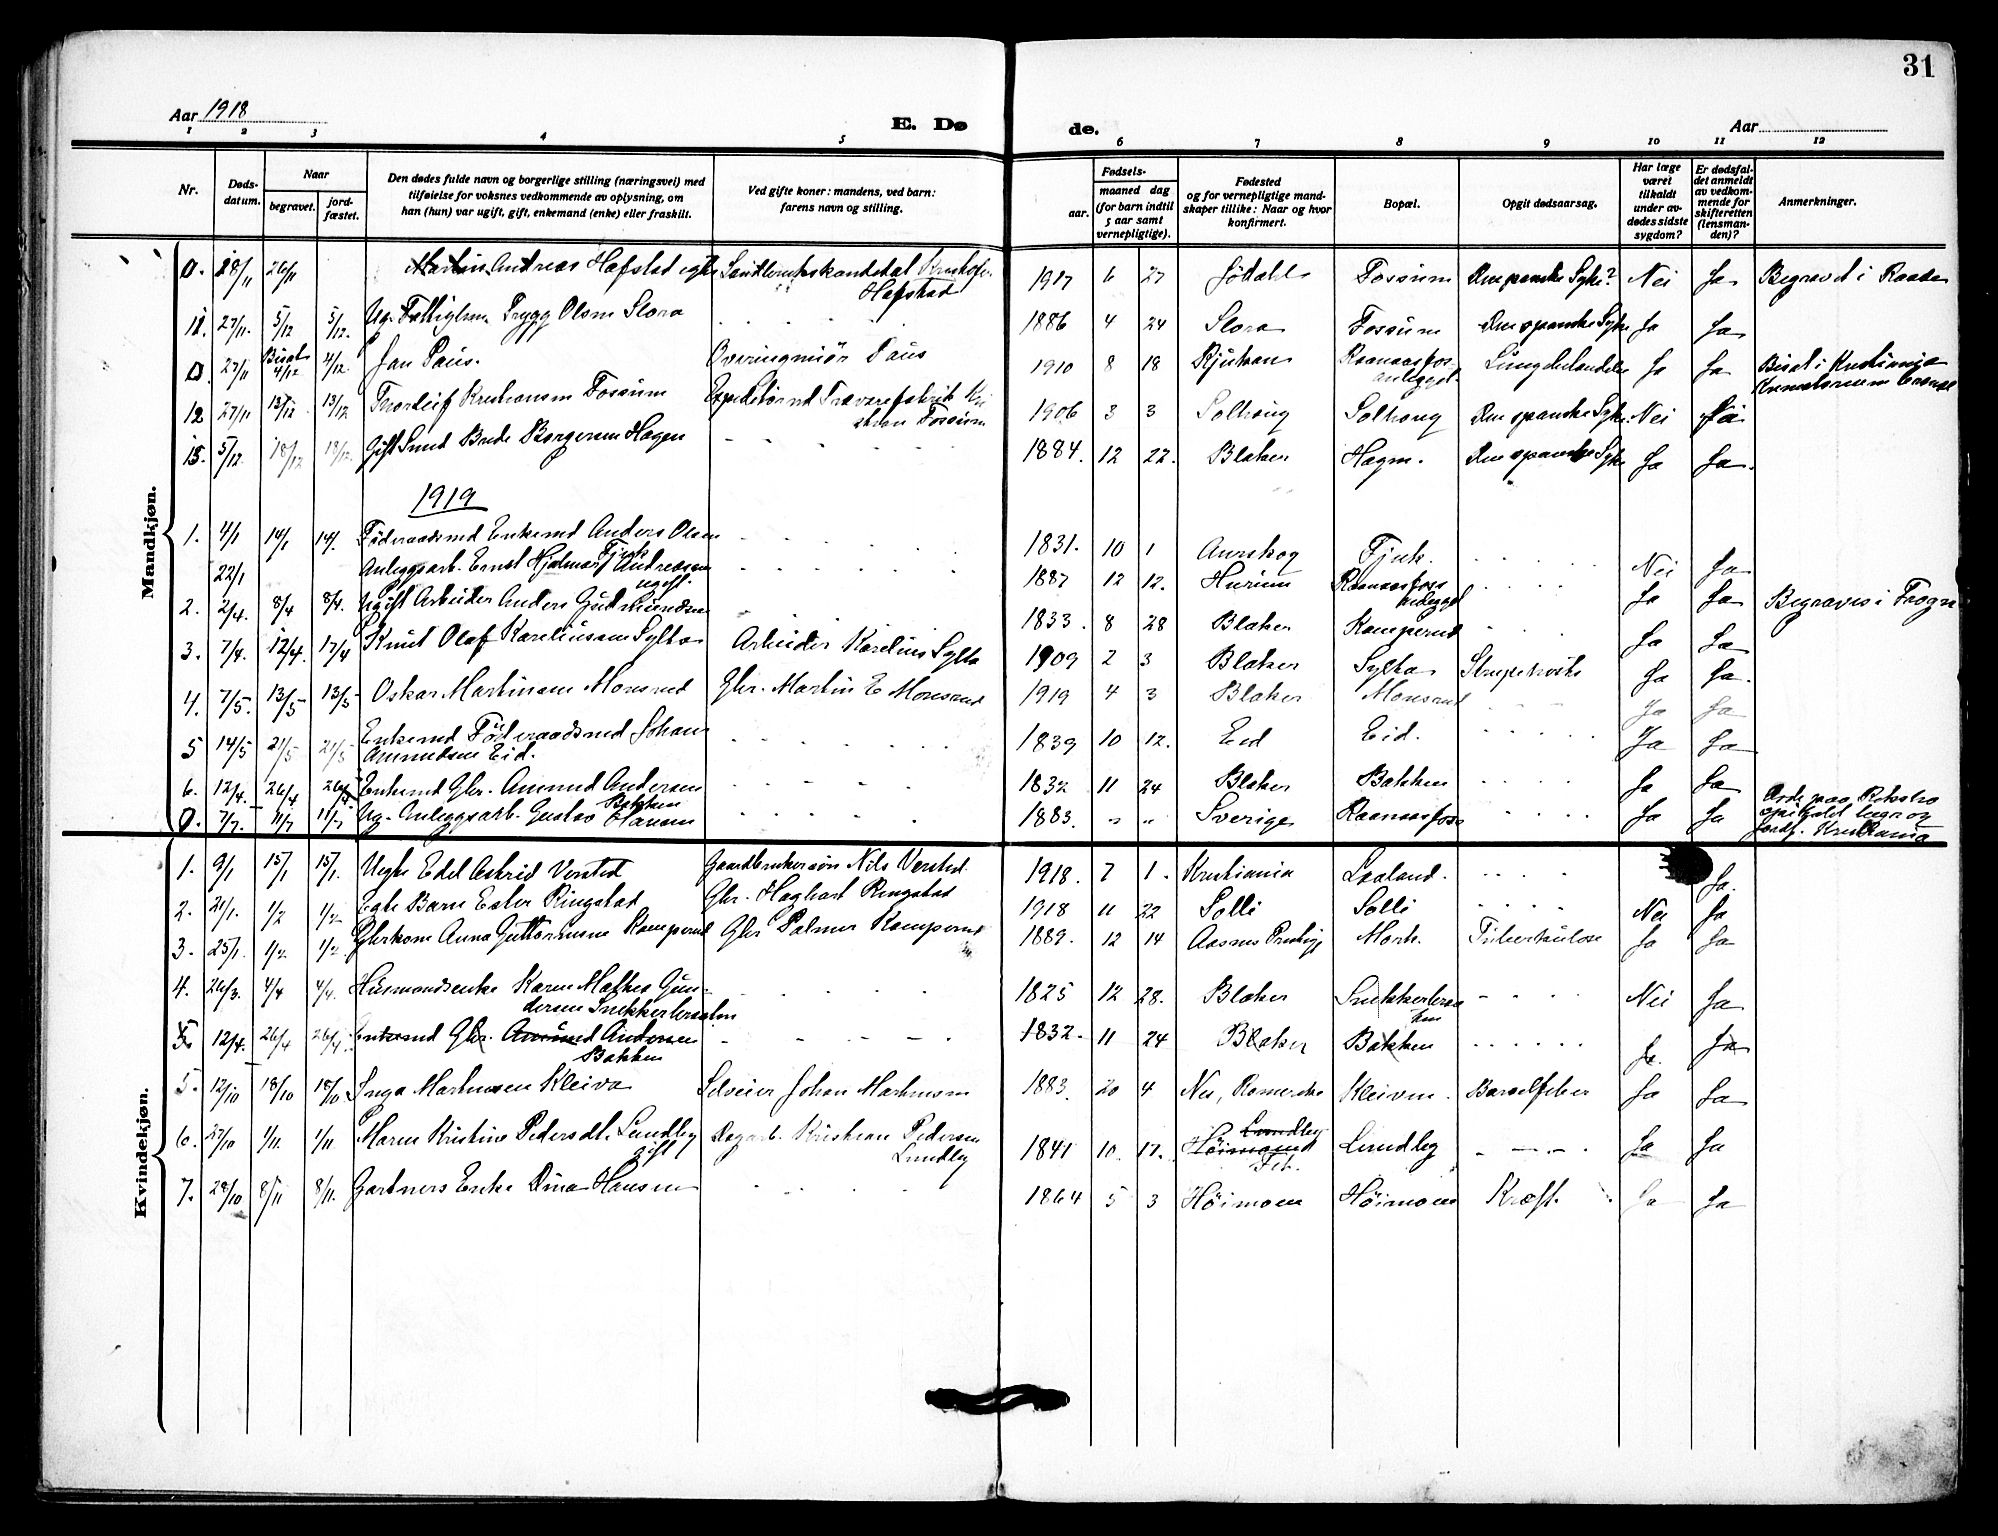 31
Aar 1918
E. Dø de.
Aar
1 2 3 4 5 6 7 8 9 10 11 12
Nr.
Døds-
datum.
Naar
begravet.
jord-
fæstet.
Den dødes fulde navn og borgerlige stilling (næringsvei) med
tilføielse for voksnes vedkommende av oplysning, om
han (hun) var ugift, gift, enkemand (enke) eller fraskilt.
Ved gifte koner: mandens, ved barn:
farens navn og stilling.
Fødsels-
aar.
maaned dag
(for barn indtil
5 aar samt
vernepligtige).
Fødested
og for vernepligtige mand-
skaper tillike: Naar og hvor
konfirmert.
Bopæl.
Opgit dødsaarsag.
Har læge
været
tilkaldt
under av-
dødes sidste
sygdom?
Er dødsfal-
det anmeldt
av vedkom-
mende for
skifteretten
(lensman-
den)?
Anmerkninger.
Mandkjøn.
0. 18/11 26/11 Martin Andreas Hafstad Hafstad 1917 6 27 Fossum Den spanske Syke? Nei Ja Begravet i Raade
11. 27/11. 5/12 5/12. Ug. Trygg Olsen Slora 1886 4 24 Slora Fossum Den spanske Syke Ja Ja
0. 27/11 Bisat 4/12 4/12. Jan Paus. Overingeniør Paus 1910 8 18 Rjukan Raanaasfos anlegget. Lungebetændelse Ja Ja Bisat i Kristiania
12 27/11 13/12 13/12 Thorleif Kristiansen Fossum Fossum 1906 3 3 Solhaug Solhaug Den spanske Syke Nei Ja
13. 5/12. 18/12 18/12. Gift Borgersen Hagen 1884. 12 22. Blaker Hagen. Den spanske Syke Ja Ja.
1919
1. 4/1 14/1 14/1. Føderaadsmd Enkemd Anders Olsen Fjuk 1831. 10 1 Aurskog Fjuk. Nei Ja
22/1 Anleggsarb. Ernst Hjalmar Andreasen ugift. 1887 12 12. Hurum Raanaasfoss anlegget Ja Ja Begraves i Frogn
2. 2/4. 8/4 8/4. Ugift Arbeider Anders Gudmundsen 1833. 8 28 Blaker Kamperud Ja Ja
3. 7/4. 12/4. 17/4 Knut Olaf Kareliussen Sylta Arbeider Karelius Sylta 1909 2 3 Blaker Sylta Strupehoste Ja Ja.
4. 7/5. 13/5 13/5 Oskar Martinsen Monsrud Gbr. Martin E Monsrud 1919 4 3 Blaker Monsrud Ja Ja
5 14/5 21/5 21/5 Enkemd Føderaadsmd Johan
Amundsen Eid. 1839 10 12. Eid Eid. Ja Ja
6. 12/4. 26/4 26/4 Enkemd Gbr. Amund Andersen Bakken 1832 11 24 Blaker Bakken Ja Ja
0. 7/7. 11/7 11/7 Ug. Anleggsarb. Gustav Hansen 1883. " " Sverige Raanaasfoss Ja Ja
Kvindekjøn.
1. 9/1 15/1 15/1. Edel Astrid Versted Nils Versted. 1918. 7 1. Kristiania Laaland. Ja.
2. 21/1. 1/2 1/2 Egte Barn Ester Ringstad Gbr. Hagbart Ringstad 1918 11 22 Solli Solli Nei Ja
3. 25/1. 1/2. 1/2. Gbrkone Anna Guttormsen Kamperud Gbr Palmer Kamperud 1889. 12 14 Mork. Tuberkulose Ja Ja
4. 26/3. 4/4 4/4. Husmandsenke Karen Mathea Gun-
dersen 1825 12 28. Blaker Nei Ja
5. 12/4. 26/4 26/4. Enkemd Gbr. Amund Andersen
Bakken 1832. 11 24 Blaker Bakken Ja. Ja
5. 12/10 18/10 18/10 Inga Martinsen Kleiva Selveier Johan Martinsen 1883. 20 4 Nes, Romerike Kleiven. Barselfeber Ja Ja
6. 27/10 1/11. 1/11 Maren Kristine Pedersdt. Lundby
gift Dagarb. Kristian Pedersen
Lundby 1841 10. 17. Lundby
Høimoen
Fet. Lundby Ja Ja
7. 28/10 8/11 8/11. Gartners Enke Dina Hansen 1864 5 3 Høimoen Høimoen Kræft. Ja Ja